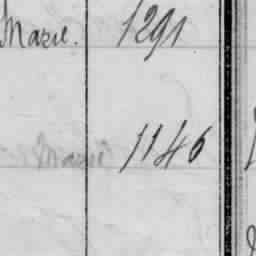 Marie. 1291
Marie 1146